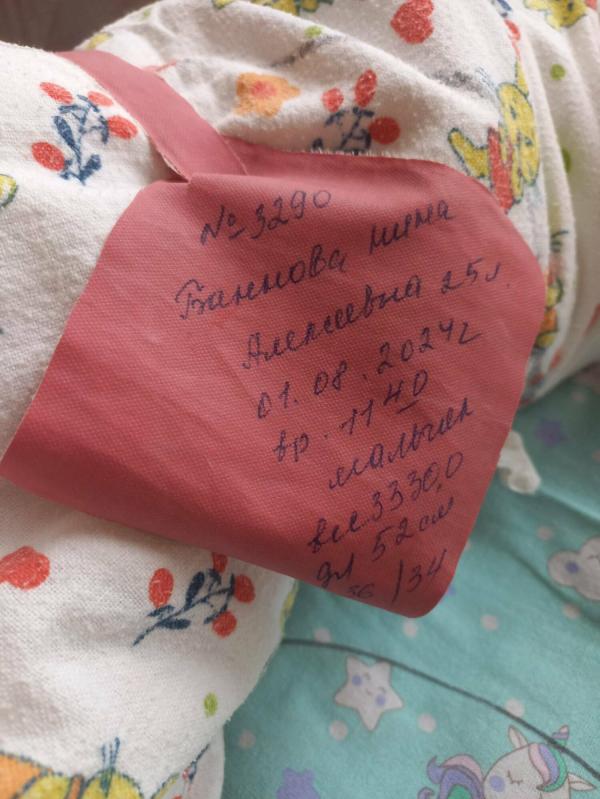 № 3290
Баннова
Алексеевна 25 л.
01.08.2024г
вр. 11 40
мальчик
вес 3330,0
дл 52 см
36/34